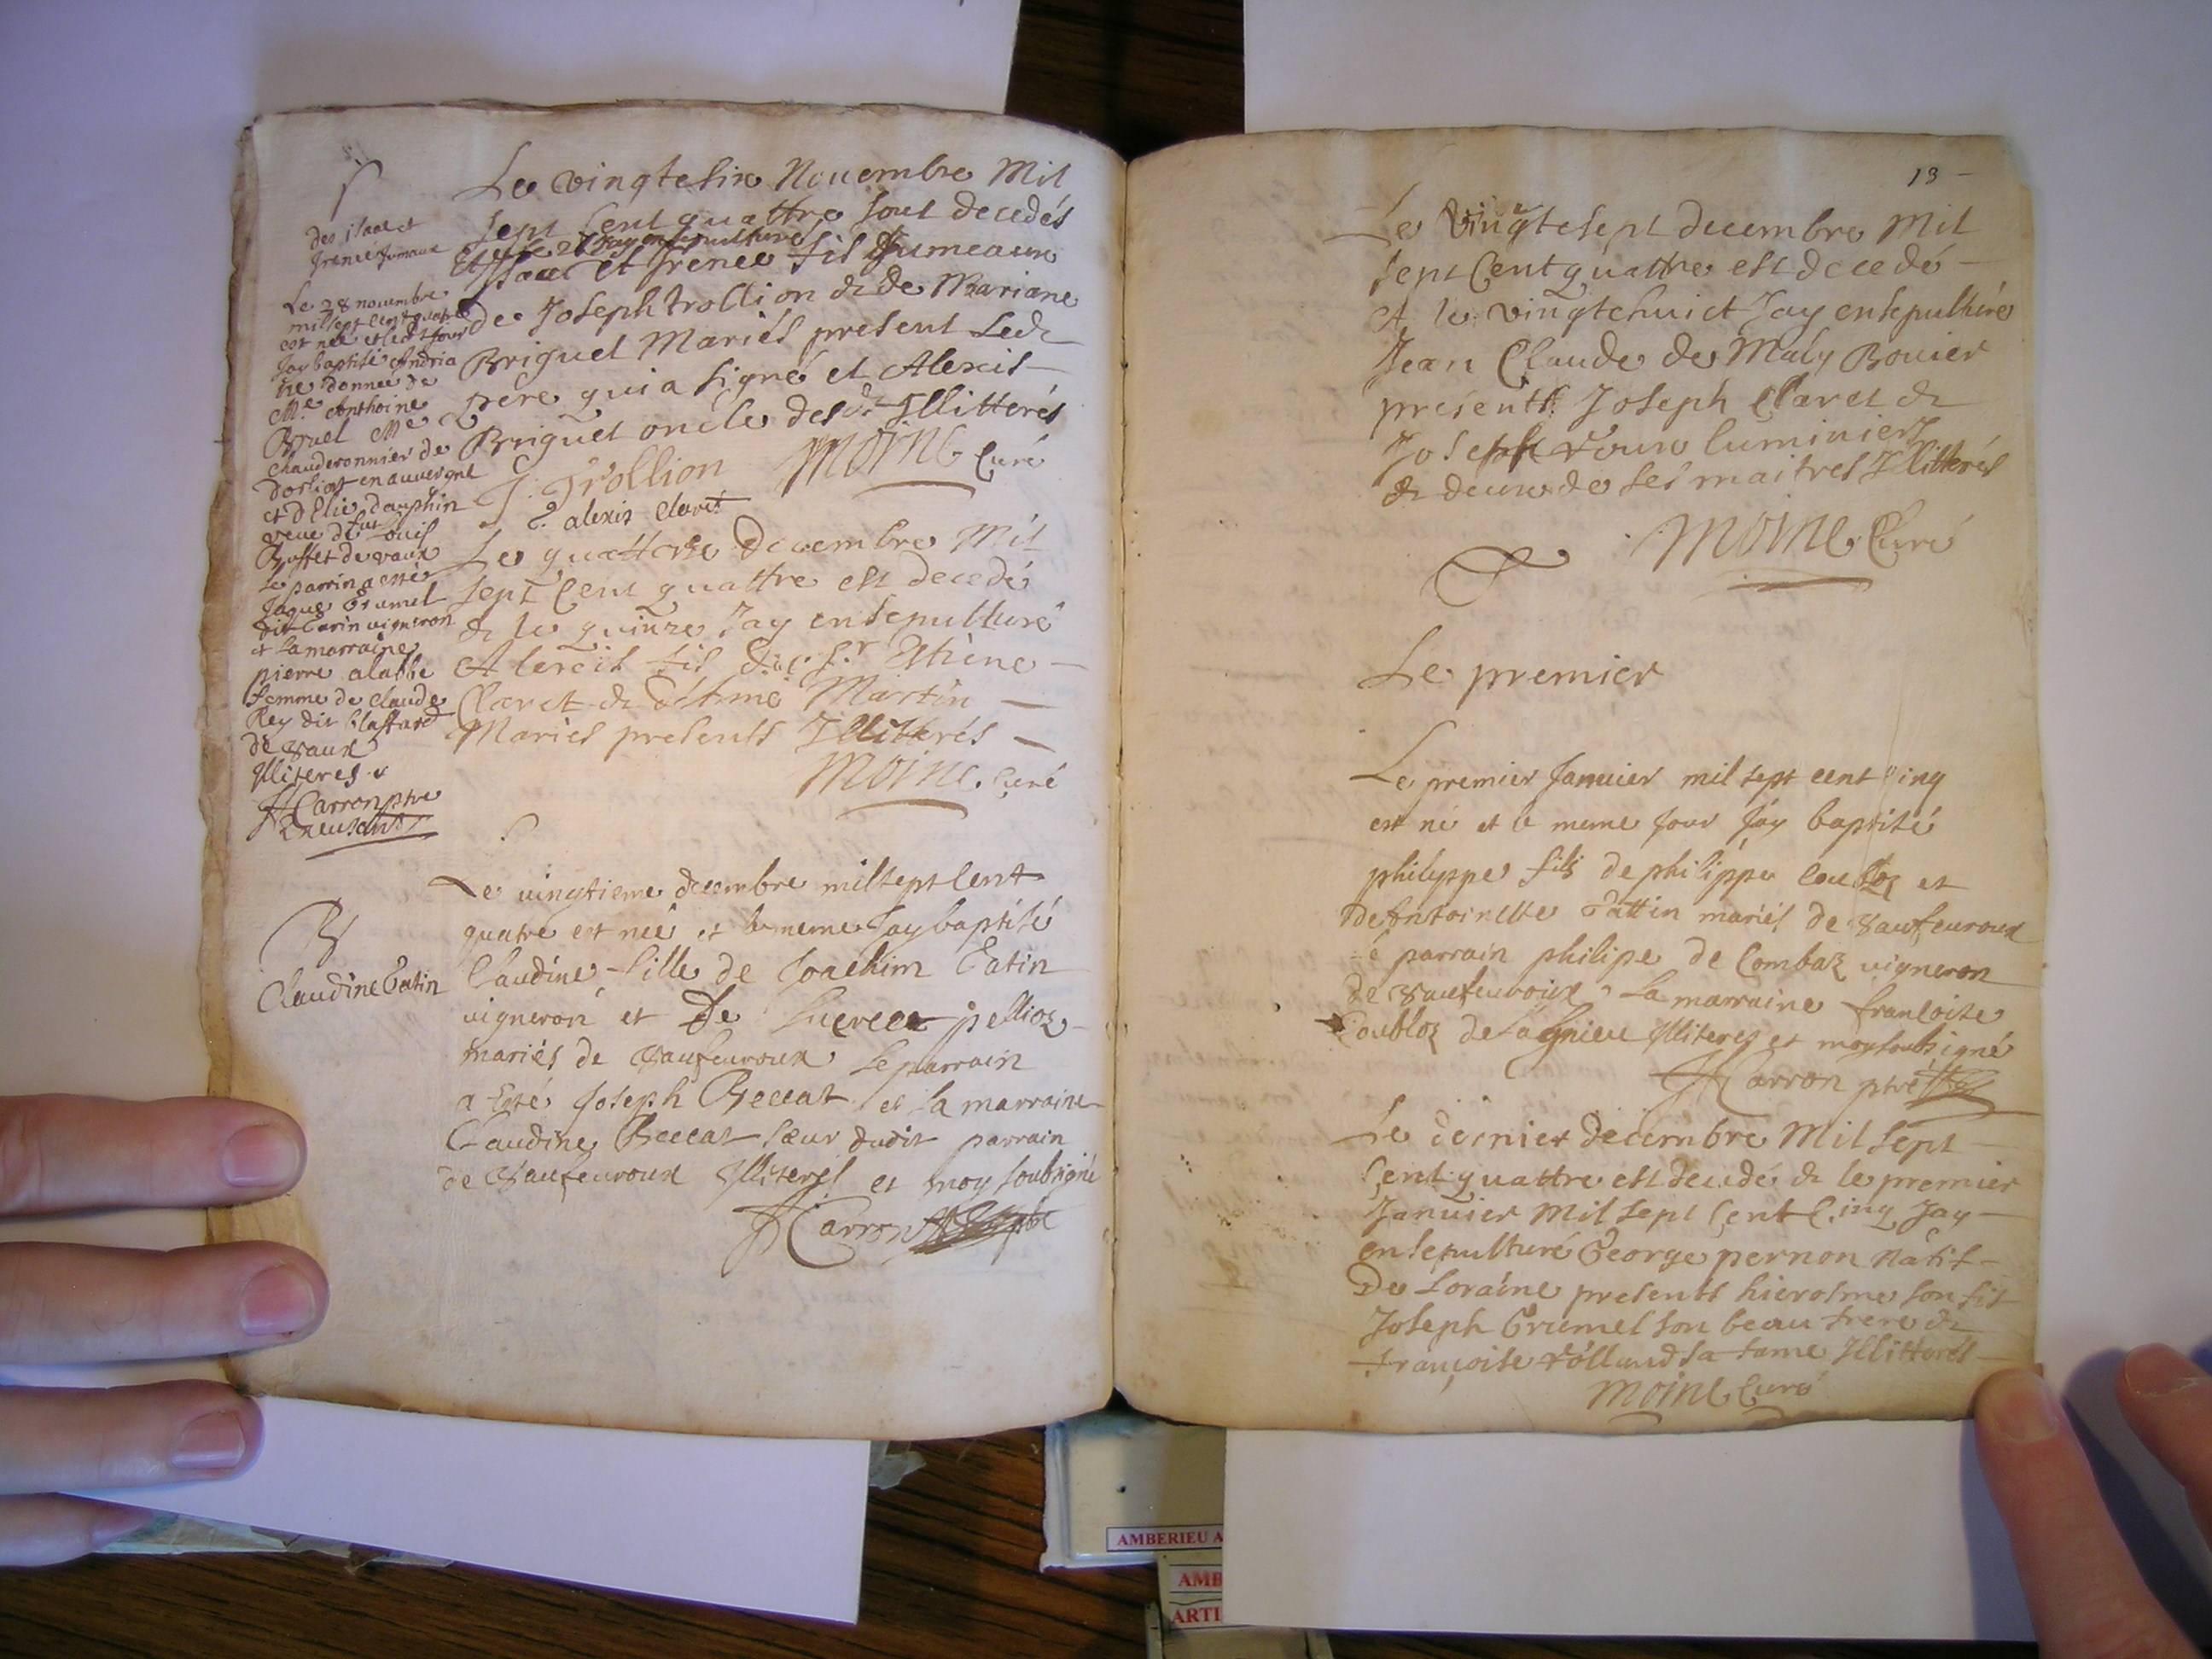 Le vingtesix Novembre Mil
sept Cent quattre sont decedés
et le 27 Jay ensepulturé
Isaac et Irenée fils Jumeaux
de Joseph trollion & de Mariane
Briguet Mariés present Led
pere qui a signé et Alexis
Briguet oncle des d Illitterés
J. Trollion Moine Curé
E. alexis claret
des isaac et
Irenée Jumaux
Le 28 novembre
mil sept cent quatre
est née et led Jour
Jay baptisé Andria
ne donnée de
Me Anthoine
Bruel Me
chauderonnier de
dorliat en auvergne
et d'Elie dauphin
veve de fut Louis
Buffet de vaux
le parrin a esté
Jaque Grumel
dit Carin vigneron
et la marraine
pierre alabbe
femme de claude
Rey dit blaffard
de vaux
Illiteres
H Carron ptre
Le quattorze Decembre Mil
sept Cent quattre est decedé
& le quinze Jay ensepulturé
Alexis fils du Sr Estiene
Claret & d'Esthme Martin
Mariés presents Illitterés
Moine. Curé
Le vingtieme decembre mil sept Cent
quatre est neé et le meme Jay baptisé
Claudine fille de Joachim Tatin
vigneron et De Lucrece pellioz
mariés de Vaufevroux Le parrain
a esté Joseph Beccat et la marraine
Claudine Beccat sœur dudit parrain
de Vaufevroux Illiterés et moy soubsigné
H Carron
Claudine Tatin
13
Le Vingtesept decembre Mil
sept Cent quattre est decedé
et le vingtehuict Jay ensepulturé
Jean Claude de Maly Bouier
presents Joseph Claret &
Joseph roux luminiers
& deux de ses maitres Illitterés
Moine Curé
Le premier
Le premier Januier mil sept cent cinq
est né et le meme Jour Jay baptisé
philyppe fils de philippe Coubloz et
De Antoinette Tattin mariés de Vaufevroux
le parrain philipe de Combaz vigneron
de Vaufevroux La marraine francoise
Coubloz de lagnieu Illiteres et moy soubsigné
H Carron ptre
Le dernier decembre Mil sept
Cent quattre est decedé & le premier
Januier Mil sept Cent Cinq Jay
ensepulturé George pernon Natif
De Loraine presents hierosme son fils
Joseph Grumel son beau frere &
françoise rolland sa fame Illitterés
Moine Curé
AMBERIEU A
AMB
ARTI